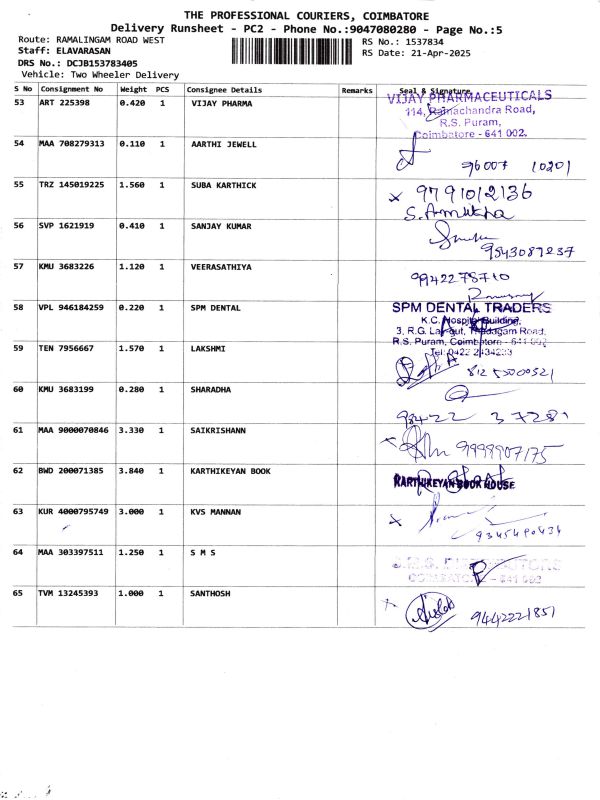 THE PROFESSIONAL COURIERS, COIMBATORE
Delivery Runsheet - PC2 - Phone No.:9047080280 - Page No.:5
Route: RAMALINGAM ROAD WEST
RS No.: 1537834
Staff: ELAVARASAN
RS Date: 21-Apr-2025
DRS No.: DCJB153783405
Vehicle: Two Wheeler Delivery
S No Consignment No Weight PCS Consignee Details Remarks Seal & Signature
53 ART 225398 0.420 1 VIJAY PHARMA
VIJAY PHARMACEUTICALS
114, Ramachandra Road,
R.S. Puram,
Coimbatore - 641 002.
54 MAA 708279313 0.110 1 AARTHI JEWELL
96007 10201
55 TRZ 145019225 1.560 1 SUBA KARTHICK
9791012136
S. Amritha
56 SVP 1621919 0.410 1 SANJAY KUMAR
9543087237
57 KMU 3683226 1.120 1 VEERASATHIYA
9942278710
58 VPL 946184259 0.220 1 SPM DENTAL
SPM DENTAL TRADERS
K.C. Hospital Building,
3, R.G. Layout, Thadagam Road,
R.S. Puram, Coimbatore - 641 002
Tel: 0422 2434233
59 TEN 7956667 1.570 1 LAKSHMI
60 KMU 3683199 0.280 1 SHARADHA
98422 37281
61 MAA 9000070846 3.330 1 SAIKRISHANN
9999907175
62 BWD 200071385 3.840 1 KARTHIKEYAN BOOK
KARTHIKEYAN BOOK HOUSE
63 KUR 4000795749 3.000 1 KVS MANNAN
9345490434
64 MAA 303397511 1.250 1 S M S
S.M.S. DISTRIBUTORS
COIMBATORE - 641 002
65 TVM 13245393 1.000 1 SANTHOSH
9442221851